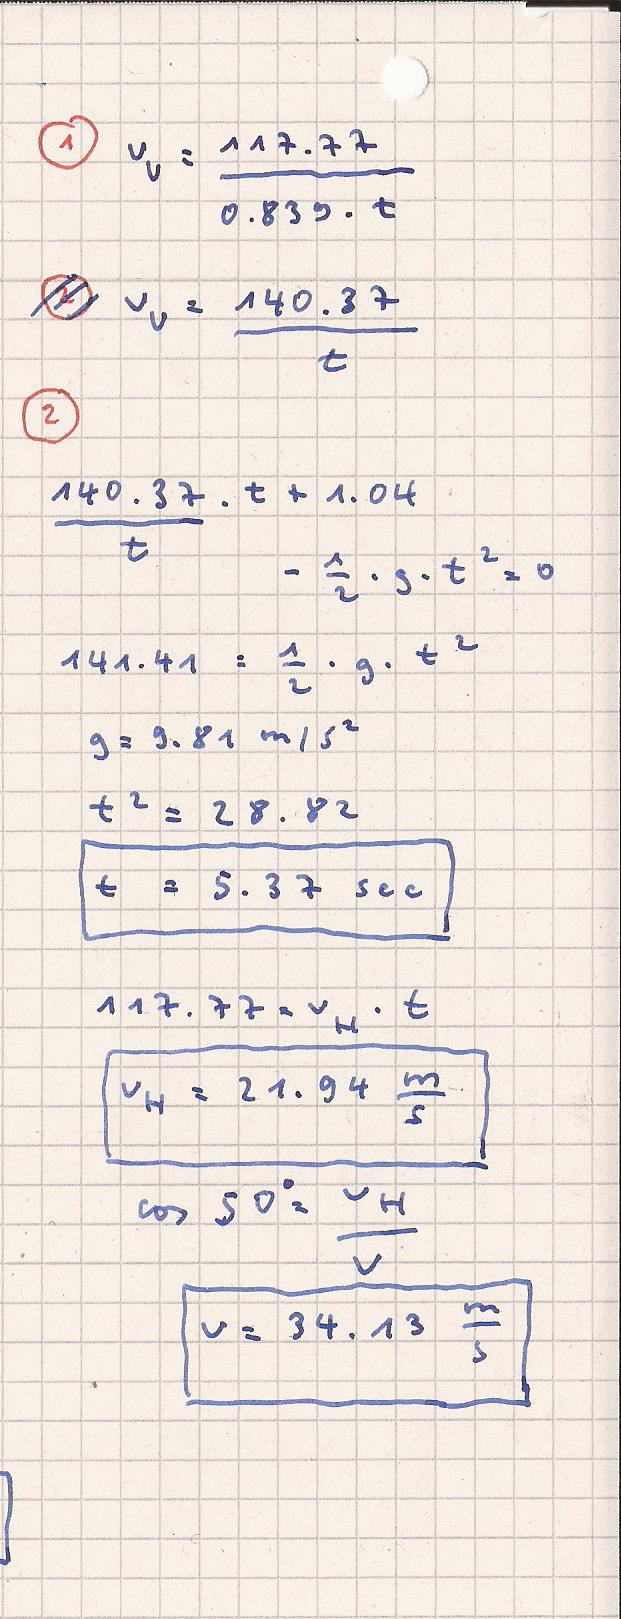 1 v_V = 117.77 / 0.839 · t
v_V = 140.37 / t
2
140.37 / t · t + 1.04
- 1/2 · g · t² = 0
141.41 = 1/2 · g · t²
g = 9.81 m/s²
t² = 28.82
t = 5.37 sec
117.77 = v_H · t
v_H = 21.94 m/s
cos 50° = v_H / v
v = 34.13 m/s